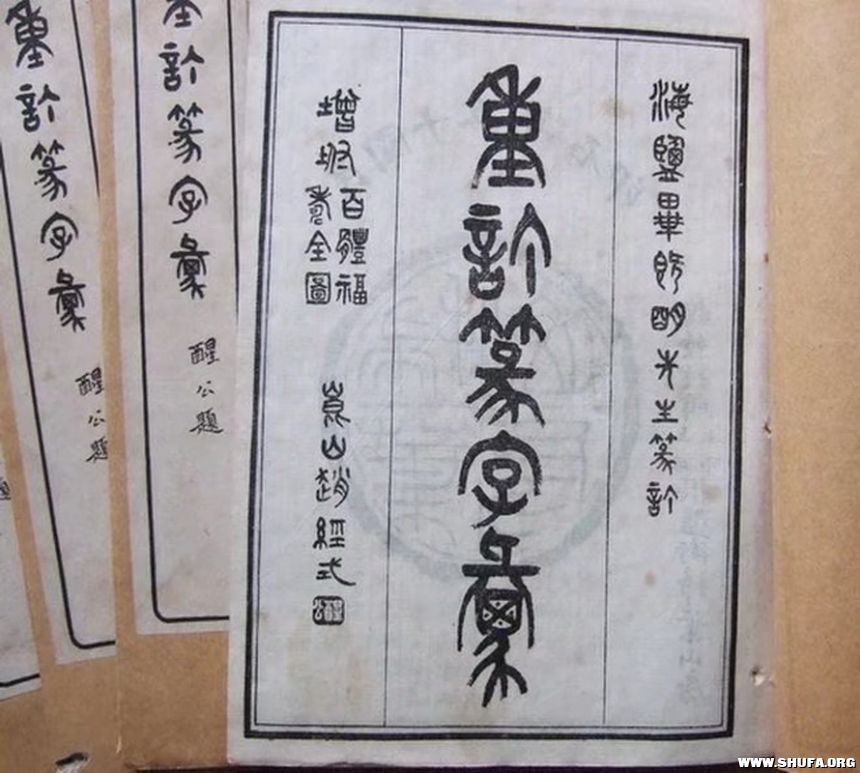 海鹽畢既明先生篆訂
重訂篆字彙
增坿百體福
壽全圖
崑山趙經式
重訂篆字彙
醒公題
重訂篆字彙
醒公題
WWW.SHUFA.ORG